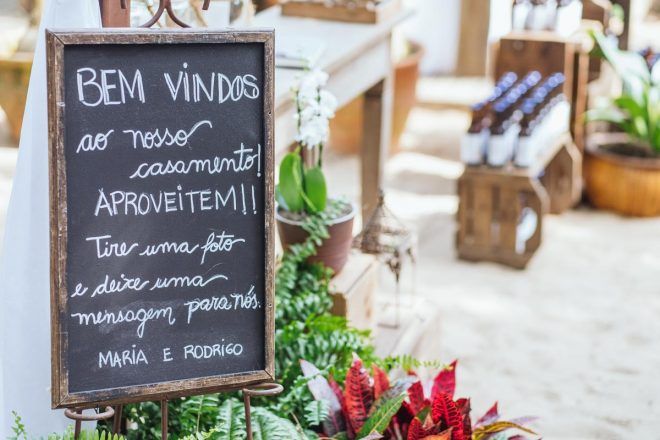 BEM VINDOS
ao nosso
casamento!
APROVEITEM!!
Tire uma foto
e deixe uma
mensagem para nós.
MARIA E RODRIGO